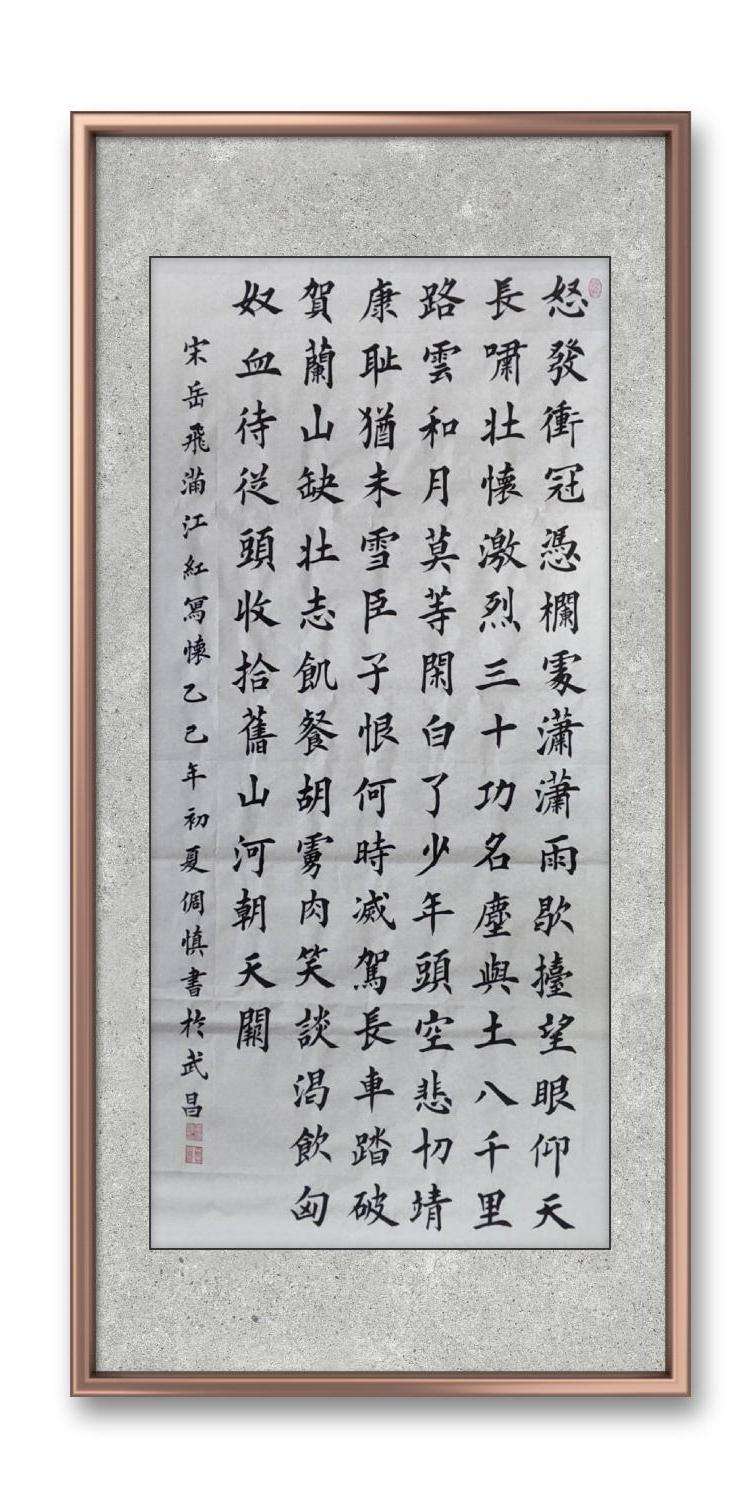 怒發衝冠憑欄處瀟瀟雨歇擡望眼仰天
長嘯壯懷激烈三十功名塵與土八千里
路雲和月莫等閑白了少年頭空悲切靖
康耻猶未雪臣子恨何時滅駕長車踏破
賀蘭山缺壯志飢餐胡虜肉笑談渴飲匈
奴血待從頭收拾舊山河朝天闕
宋岳飛滿江紅寫懷乙巳年初夏倜慎書於武昌